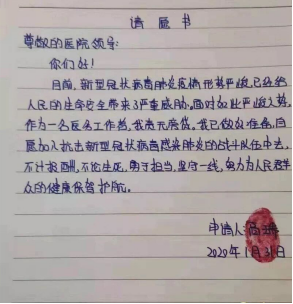 请愿书
尊敬的医院领导:
你们好!
目前,新型冠状病毒肺炎疫情形势严峻,已经给
人民的生命安全带来了严重威胁。面对如此严峻入势,
作为一名医务工作者,我责无旁贷。我已做好准备,自
愿加入抗击新型冠状病毒感染肺炎的战斗队伍中去,
不计报酬,不论生死,勇于担当,坚守一线,努力为人民群
众的健康保驾护航。
申请人:高
2020年1月31日